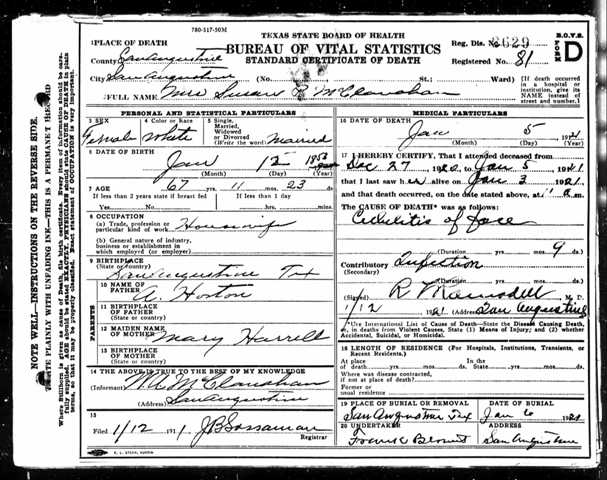 780-517-503M
TEXAS STATE BOARD OF HEALTH
BUREAU OF VITAL STATISTICS
STANDARD CERTIFICATE OF DEATH
B.O.V.S.
FORM D
Reg. Dis. No. 2629
Registered No. 81
1 PLACE OF DEATH
County San Augustine
City San Augustine (No. St.; Ward)
[If death occurred in a hospital or institution, give its NAME instead of street and number.]
2 FULL NAME Mrs Susan P. McClanahan
PERSONAL AND STATISTICAL PARTICULARS
3 SEX Female
4 Color or Race White
5 Single, Married, Widowed or Divorced (Write the word) Married
6 DATE OF BIRTH
Jan 12 1853
(Month) (Day) (Year)
7 AGE 67 yrs. 11 mos. 23 ds.
If less than 2 years state if breast fed If less than 1 day
Yes No hrs. min.
8 OCCUPATION
(a) Trade, profession or particular kind of work Housewife
(b) General nature of industry, business or establishment in which employed (or employer)
9 BIRTHPLACE
(State or country) San Augustine Tex
PARENTS
10 NAME OF FATHER A. Horton
11 BIRTHPLACE OF FATHER (State or country)
12 MAIDEN NAME OF MOTHER Mary Harrell
13 BIRTHPLACE OF MOTHER (State or country)
14 THE ABOVE IS TRUE TO THE BEST OF MY KNOWLEDGE
(Informant) McClanahan
(Address) San Augustine
15
Filed 1/12 191 1. J B Sossaman
Registrar
MEDICAL PARTICULARS
16 DATE OF DEATH
Jan 5 1921
(Month) (Day) (Year)
17 I HEREBY CERTIFY, That I attended deceased from
Dec 27 1920 to Jan 5 1921
that I last saw her alive on Jan 3 1921
and that death occurred, on the date stated above, at m.
The CAUSE OF DEATH* was as follows:
Cellulitis of face
(Duration yrs. mos. 9 ds.
Contributory Infection
(Secondary)
(Duration yrs. mos. ds.
(Signed) M. D.
1/12 1921 (Address) San Augustine
*Use International List of Cause of Death—State the Disease Causing Death, or, in deaths from Violent Causes, State (1) Means of Injury; and (2) whether Accidental, Suicidal, or Homicidal.
18 LENGTH OF RESIDENCE (For Hospitals, Institutions, Transients, or Recent Residents.)
At place of death yrs. mos. ds. In the State yrs. mos. ds.
Where was disease contracted, if not at place of death?
Former or usual residence
19 PLACE OF BURIAL OR REMOVAL DATE OF BURIAL
San Augustine Tex Jan 6 1921
20 UNDERTAKER ADDRESS
San Augustine
NOTE WELL—INSTRUCTIONS ON THE REVERSE SIDE.
WRITE PLAINLY WITH UNFADING INK—THIS IS A PERMANENT RECORD